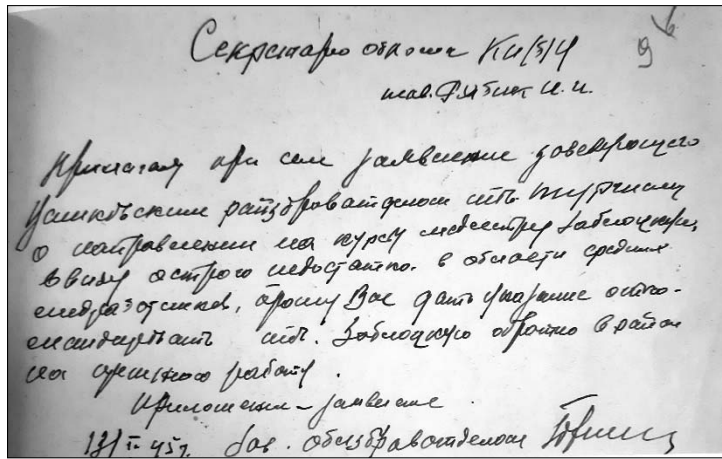 Секретарю обкома КП(б)У
тов. Рябик И.И.
Прилагая при сем заявление заведующего
райздравотделом
о направлении на курсы медсестру Заблоцкую,
ввиду острого недостатка в области средних
медработников, прошу Вас дать указание отко-
мандировать Заблоцкую обратно в район
на прежнюю работу.
Приложение - заявление
45 г. Зав. облздравотделом